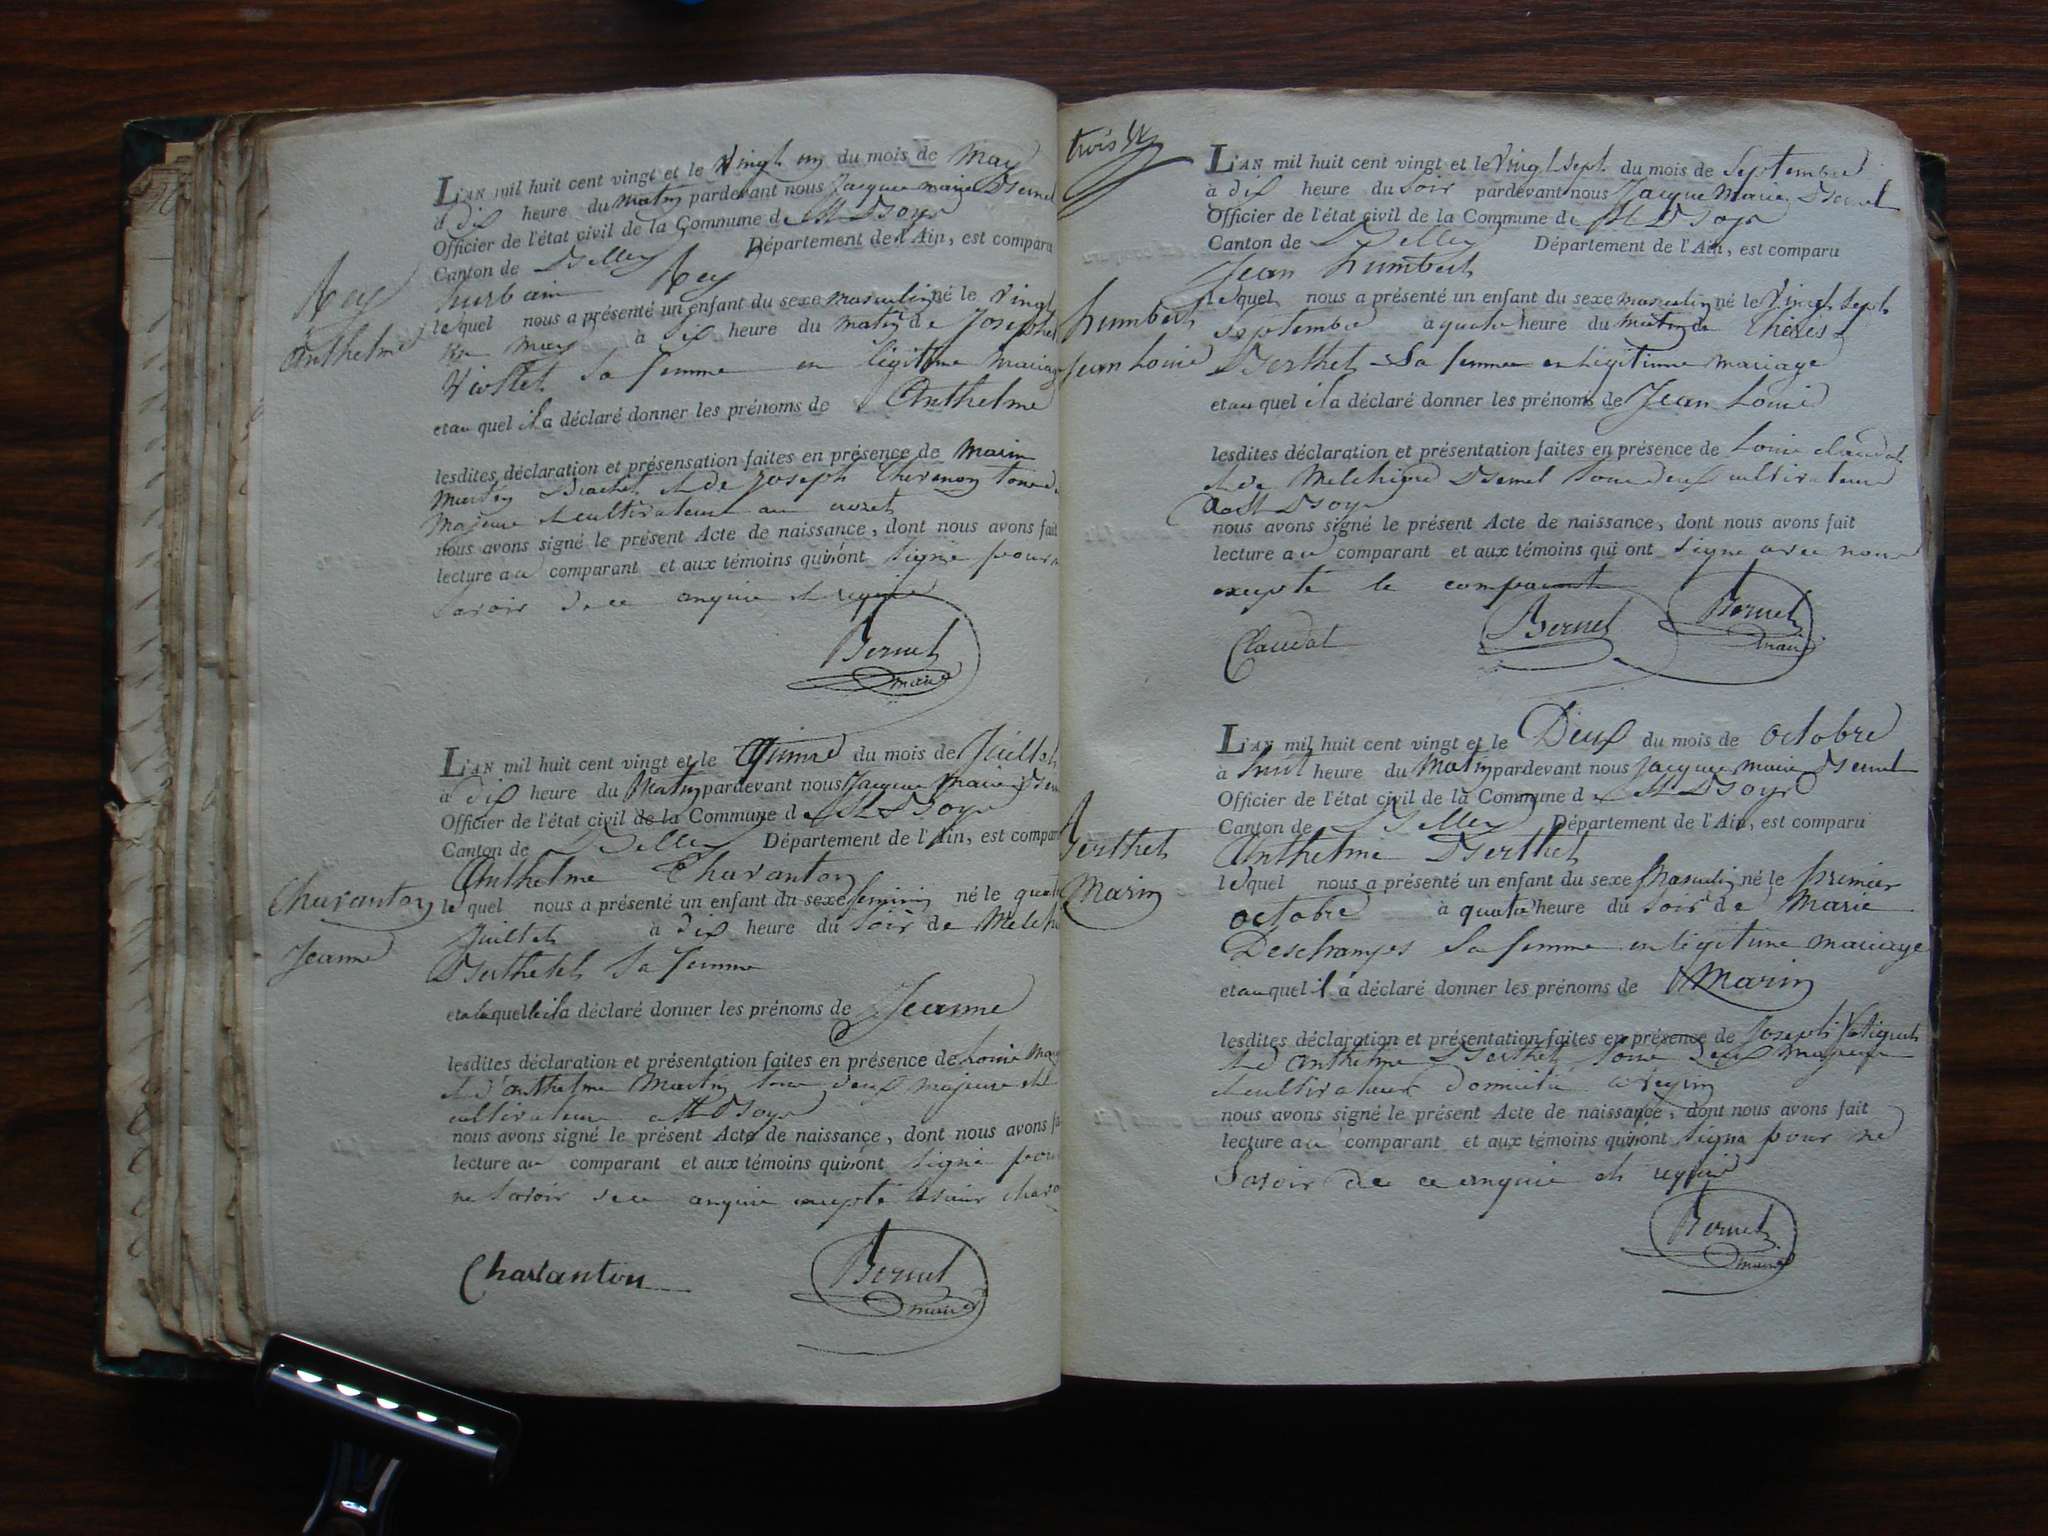 L'AN mil huit cent vingt et le Vingt un du mois de May
à dix heure du matin pardevant nous Jacque marie Bernet
Officier de l'état civil de la Commune de St Boys
Canton de Belley Département de l'Ain, est comparu
hurbain Rey
Rey
Anthelme
lequel nous a présenté un enfant du sexe masculin né le Vingt
un may à dix heure du matin de Josephte
Viollet Sa femme en légitime mariage
et au quel il a déclaré donner les prénoms de Anthelme
lesdites déclaration et présensation faites en présence de marin
Martin Brachet et de Joseph Thevenon tous deux
Majeurs et cultivateurs au
nous avons signé le présent Acte de naissance, dont nous avons fait
lecture au comparant et aux témoins qui n'ont signé pour ne
Savoir de ce enquis et requis
Bernet
maire
L'AN mil huit cent vingt et le Quinze du mois de Juillet
à dix heure du Matin pardevant nous Jacque Marie Bernet
Officier de l'état civil de la Commune de St Boys
Canton de Belley Département de l'Ain, est comparu
Anthelme Charanton
Charanton
Jeanne
le quel nous a présenté un enfant du sexe feminin né le quatorze
Juillet à dix heure du Soir de Melchi
Berthelet Sa femme
et a laquelle il a déclaré donner les prénoms de Jeanne
lesdites déclaration et présentation faites en présence de Louis
et d'anthelme Martin tous deux majeurs et
cultivateurs a St Boys
nous avons signé le présent Acte de naissance, dont nous avons fait
lecture au comparant et aux témoins qui n'ont signé pour
ne Savoir de ce enquis excepté le sieur Charanton
Charanton
Bernet
maire
trois
L'AN mil huit cent vingt et le Vingt Sept du mois de Septembre
à dix heure du Soir pardevant nous Jacque Marie Bernet
Officier de l'état civil de la Commune de St Boys
Canton de Belley Département de l'Ain, est comparu
Jean humbert
humbert
Jean Louis
lequel nous a présenté un enfant du sexe masculin né le Vingt Sept
Septembre à quatre heure du matin de thérès
Berthet Sa femme en légitime mariage
et au quel il a déclaré donner les prénoms de Jean Louis
lesdites déclaration et présentation faites en présence de Louis claudat
et de Melchiord Bernet tous deux cultivateurs
a St Boys
nous avons signé le présent Acte de naissance, dont nous avons fait
lecture au comparant et aux témoins qui ont signé avec nous
excepté le comparant
Claudat
Bernet
Bernet
maire
L'AN mil huit cent vingt et le Deux du mois de octobre
à huit heure du Matin pardevant nous Jacque marie Bernet
Officier de l'état civil de la Commune de St Boys
Canton de Belley Département de l'Ain, est comparu
Anthelme Berthet
Berthet
Marin
lequel nous a présenté un enfant du sexe Masculin né le premier
octobre à quatre heure du Soir de Marie
Deschamps Sa femme en légitime mariage
et au quel il a déclaré donner les prénoms de Marin
lesdites déclaration et présentation faites en présence de Joseph
et d'anthelme Berthet tous deux majeurs
et cultivateurs domicilié a
nous avons signé le présent Acte de naissance, dont nous avons fait
lecture au comparant et aux témoins qui n'ont signé pour ne
Savoir de ce enquis et requis
Bernet
maire